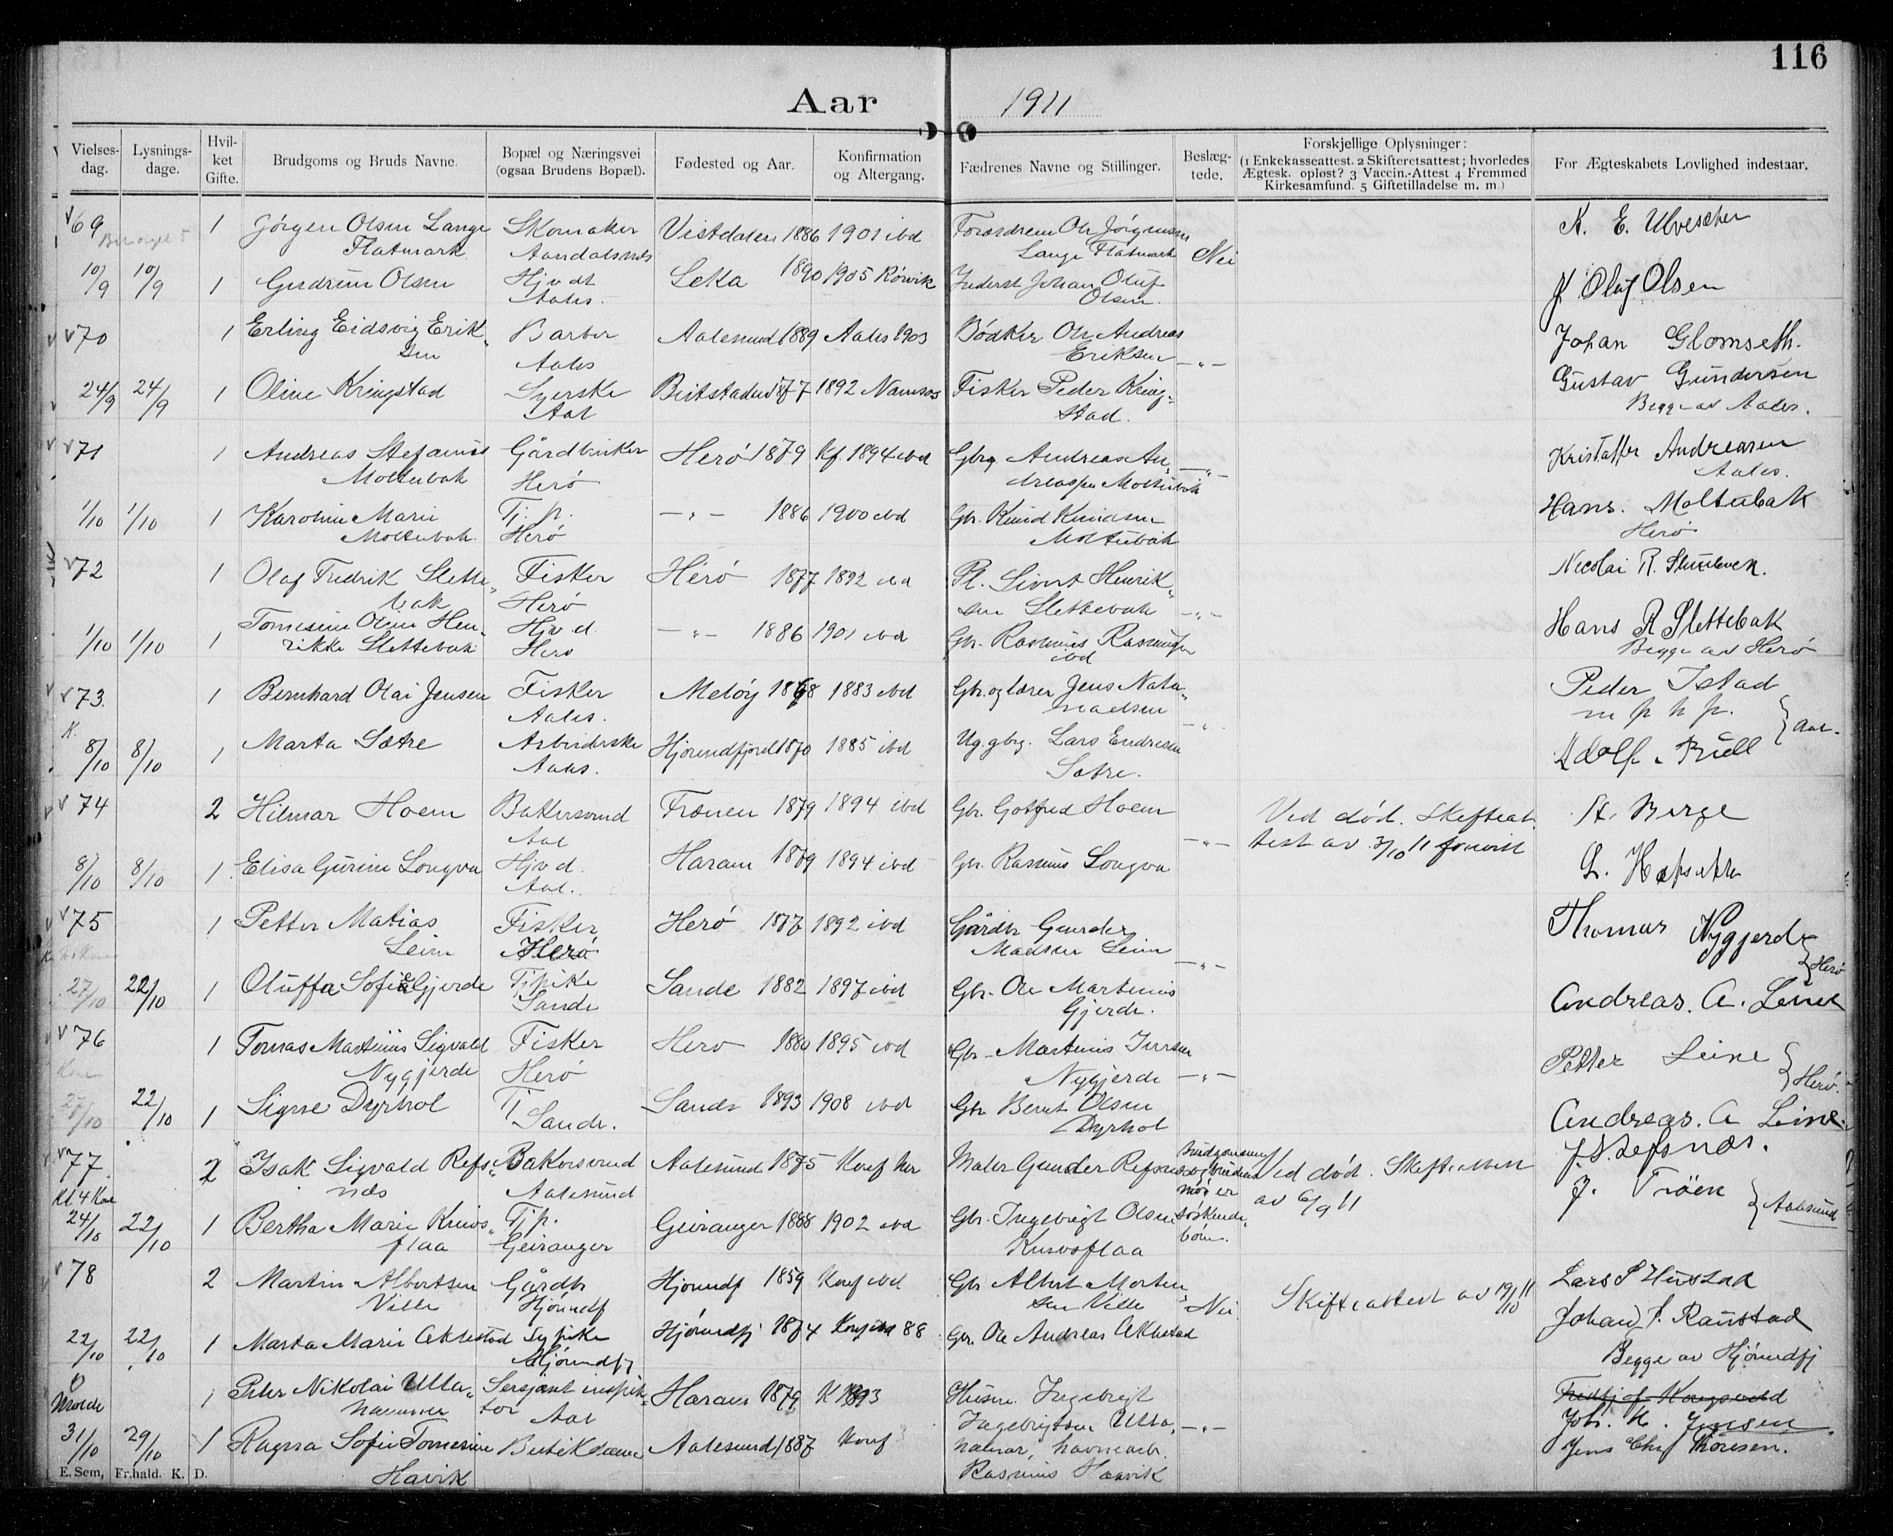 116
Aar 1911
Vielses-dag.
Lysnings-dage.
Hvil-ket Gifte.
Brudgoms og Bruds Navne.
Bopæl og Næringsvei (ogsaa Brudens Bopæl).
Fødested og Aar.
Konfirmation og Altergang.
Fædrenes Navne og Stillinger.
Beslæg-tede.
Forskjellige Oplysninger:
(1 Enkekasseattest. 2 Skifteretsattest; hvorledes
Ægtesk. opløst? 3 Vaccin.-Attest 4 Fremmed
Kirkesamfund. 5 Giftetilladelse m. m.)
For Ægteskabets Lovlighed indestaar.
69 1 Jørgen Olsen Lange Skomaker Vistdalen 1886 1901 ibd Ole Jørgensen
Flatmark Aandalsnæs Lange Flatmark Nei
10/9 10/9 1 Gudrun Olsen Hjv dt Leka 1890 1905 Rørvik Inderst Johan Oluf J Oluf Olsen
Aales. Olsen
70 1 Erling Eidsvig Erik- Barber Aalesund 1889 Aales 1903 Bødker Ole Andreas Johan Glomseth.
sen Aales Eriksen -"-
24/9 24/9 1 Oline Kringstad Syerske Beitstaden 1877 1892 Namsos Fisker Peder Kring- Gustav Gundersen
Aal stad. Begge av Aales.
71 1 Andreas Stefanus Gårdbruker Herø 1879 Kf 1894 ibd Gbrg Andreas An- Kristoffer Andreassen
Moltubak Herø Moltubak -"- Aales.
1/10 1/10 1 Karoline Marie Tj. p. -"- 1886 1900 ibd Gbr. Knud Knudsen Hans. Moltubak
Moltubak. Herø Moltubak Herø
72 1 Olaf Fredrik Slette- Fisker Herø 1877 1892 ibd Pl. Sivert Henrik- Nicolai R.
bak Herø sen Slettebak -"-
1/10 1/10 1 Tomesine Oline Hen- Hjv d. -"- 1886 1901 ibd Gbr. Rasmus Rasmussen Hans R Slettebak
rikke Slettebak Herø ibd Begge av Herø
73. 1 Bernhard Olai Jensen Fisker Meløy 1868 1883 ibd Gbr. og lærer Jens Nata- Peder Istad
Aales. naelsen -"- m p h p.
K.
8/10 8/10 1 Marta Sætre Arbeiderske Hjørundfjord 1870 1885 ibd Ug. gbrg. Lars Endresen Adolf Bull Aal-
Aales. Sætre.
74 2 Hilmar Hoem Bakersvend Frænen 1879 1894 ibd Gbr. Gotfred Hoem Ved død. Skifteat- A. Berge
Aal -"- test av 3/10 11 forevist
8/10 8/10 1 Elisa Gurine Longva Hjv d. Haram 1879 1894 ibd Gbr. Rasmus Longva
Aal.
75 1 Petter Matias Fisker Herø 1877 1892 ibd Gårdbr Gunder Thomas Nygjerde
Leine Herø Madsen Leine -"- Herø
27/10 22/10 1 Oluffa Sofie Gjerde Tj.pike Sande 1882 1897 ibd Gbr. Ole Martinus Andreas. A. Leine
Sande Gjerde.
76 1 Tomas Martinus Sigvald Fisker Herø 1880 1895 ibd Gbr. Martinus Iversen Petter Leine
Nygjerde Herø Nygjerde -"- Herø.
27/10 22/10 1 Signe Dyrhol Tj Sande 1893 1908 ibd Gbr Bernt Olsen Andreas. A Leine.
Sande. Dyrhol
77 2 Isak Sigvald Refs- Bakersvend Aalesund 1875 Konf her Maler Gunder Refsnæs brudgommens og brudens mor er søskende-børn. Ved død. Skifteattest J. Refsnæs.
næs Aalesund av 6/9 11 J. Trøen
24/10 22/10 1 Bertha Marie Knivs- Tj p. Geiranger 1888 1902 ibd Gbr. Ingebrigt Olsen Aalesund
flaa Geiranger Knivsflaa
78 2 Martin Albertsen Gårdbr Hjørundf 1859 Konf ibd Gbr Albert Morten- Nei Skifteattest av 19/10 11 Lars P Hustad
Ville Hjørundf sen Ville
22/10 22/10 1 Marta Marie Aklestad Sypike Hjørundfj 1874 Konf ibd 88 Gbr. Ole Andreas Aklestad Johan P. Ranstad
Hjørundfj Begge av Hjørundfj
Molde 1 Peter Nikolai Ulla- Sersjant inspek- Haram 1879 K 1893 Ingebrigt
hammer tør Aal Ingebrigtsen Ulla- -"- Joh. K. Jensen
31/10 29/10 1 Ragna Sofie Tomesine Butikdame Aalesund 1887 Konf havnearb. Jens Chr Thoresen.
Havik Rasmus Haavik
E. Sem, Fr.hald. K. D.